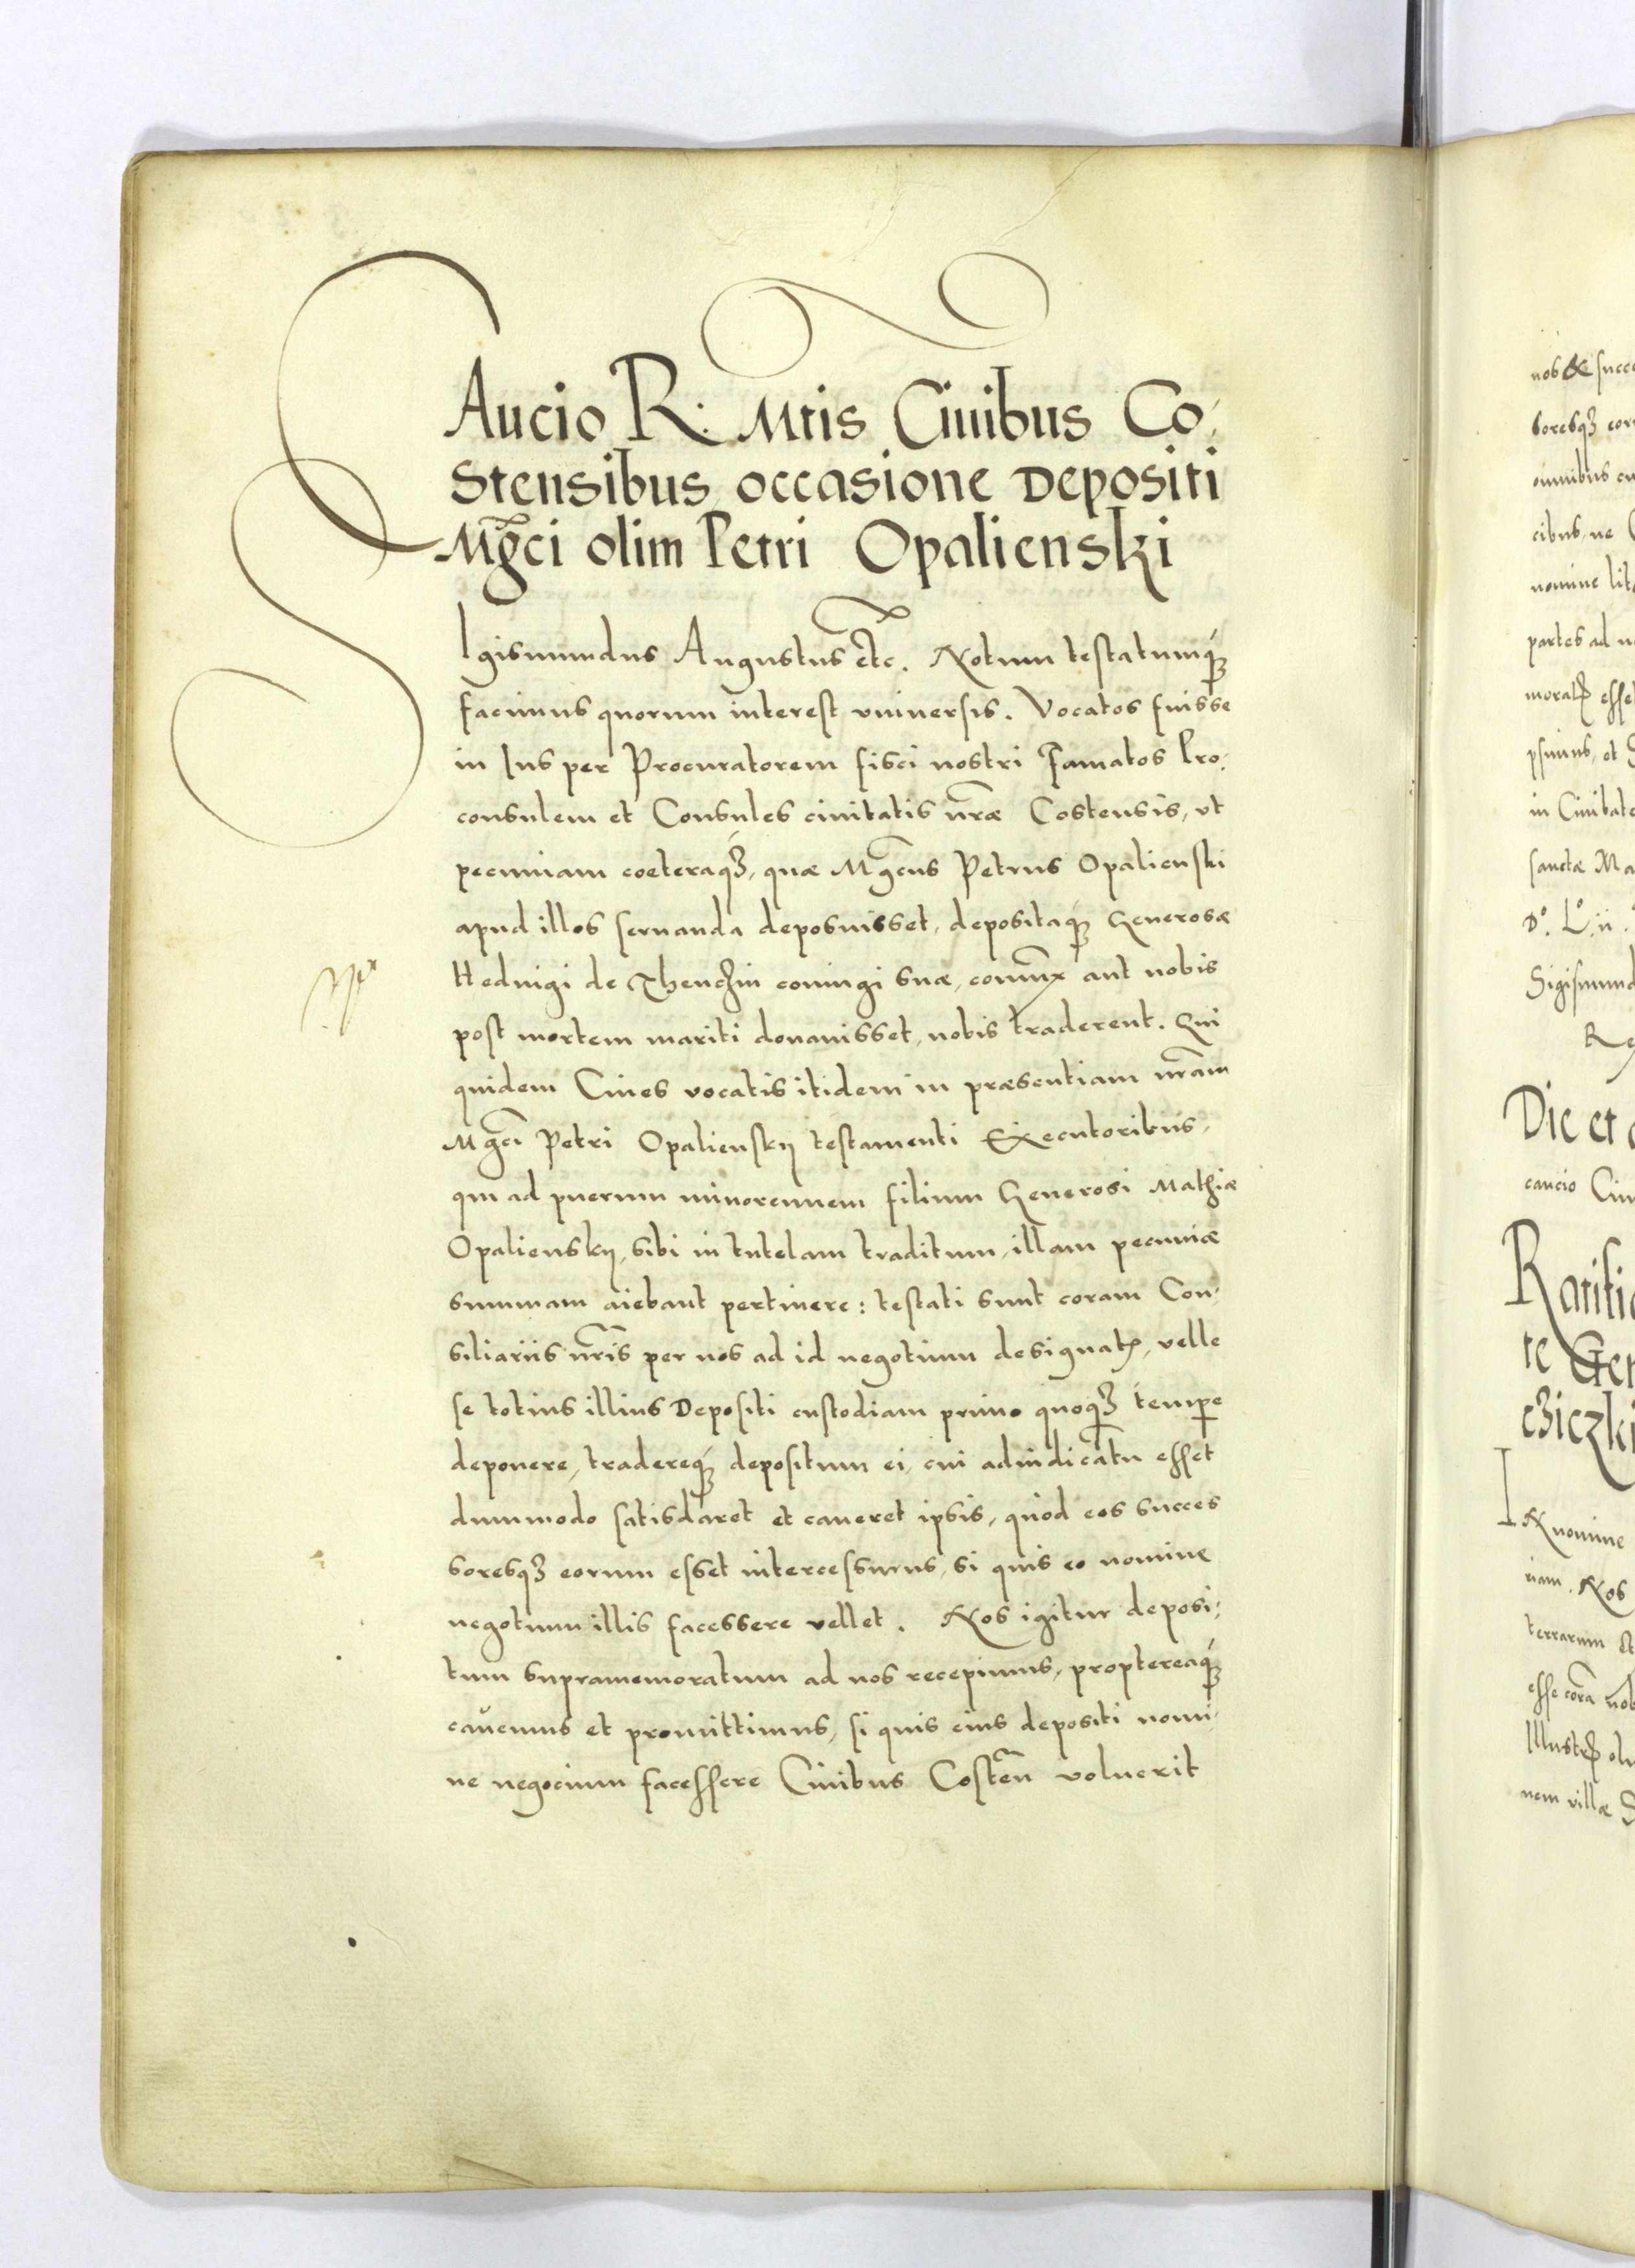 CAucio R: Mtis Ciuibus Co-
stensibus occasione Depositi
Mgci olim Petri Opalienski
SIgismundus Augustus etc. Notum testatumq́ꝫ
facimus quorum interest vniuersis. Vocatos fuisse
in Ius per Procuratorem fisci nostri Famatos Pro-
consulem et Consules ciuitatis nr̃ae Costensis, vt
pecuniam coeteraq́ꝫ, quae Mgc̃us Petrus Opalienski
apud illos seruanda deposuisset, depositaq́ꝫ Generosae
Heduigi de coniugi suae, aut nobis
post mortem mariti donauisset, nobis traderent. Qui
quidem Ciues vocatis itidem in praesentiam nr̃am
Mgc̃i Petri Opaliensky testamenti Executoribus,
qui ad puerum minorennem filium Generosi Mathiae
Opaliensky, sibi in tutelam traditum, illam pecuniae
summam aiebant pertinere: testati sunt coram Con-
siliariis nr̃is per nos ad id negotium designatꝭ, velle
se totius illius Depositi custodiam primo quoqꝫ tempe
deponere, tradereq́ꝫ depositum ei, cui adiudicatũ esset
dummodo satisdaret et caueret ipsis, quod eos succes
soresqꝫ eorum esset intercessurus, si quis eo nomine
negotium illis facessere vellet. Nos igitur deposi-
tum supramemoratum ad nos recepimus, proptereaq́ꝫ
cauemus et promittimus, si quis eius depositi nomi-
ne negocium facessere Ciuibus Costeñ voluerit
nos & succe
omnibus
cibus, ne
nomine
partes ad
in Ciuitate
sanctae Ma
Sigismund
Die et
caucio Ciu
Ratific
te Gen
IN nomine
riam. Nos
terrarum
esse corã nob
nem villae